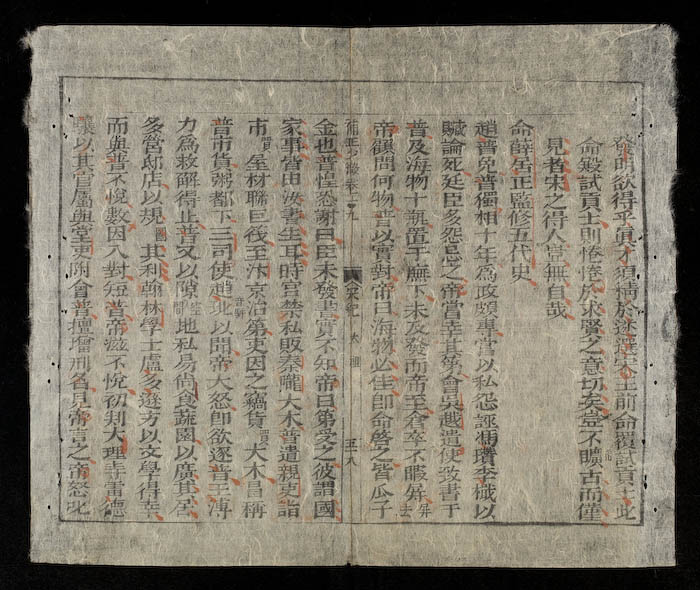 發明欲得乎真才須精於遴選宋主前命覆試貢士此
命殿試貢士則惓惓於求賢之意切矣豈不曠古而僅
見者宋之得人豈無自哉
命薛居正監修五代史
趙普免普獨相十年爲政頗專嘗以私怨誣馮瓚李檝以
贓論死廷臣多怨忌之帝嘗幸其第會吳越遣使致書于
普及海物十瓶置于廡下未及發而帝至倉卒不暇屏 屏去
帝顧問何物普以實對帝曰海物必佳卽命啓之皆瓜子
五十九
金也普惶恐謝曰臣未發書實不知帝曰第受之彼謂國
家事皆由汝書生耳時官禁私販秦隴大木普遣親吏詣
市 買 屋材聯巨筏至汴京治第吏因之竊貨 賣 大木冒稱
普市貨粥都下三司使趙玭以聞帝大怒卽欲逐普王溥
力爲救解得止普又以隙 空閒 地私易尚食蔬園以廣其居
多營邸店以規 圖 其利翰林學士盧多遜方以文學得幸
而與普不悅數因入對短普帝滋不悅初判大理寺雷德
驤以其官屬與堂吏附會普擅增刑名見帝言之帝怒叱